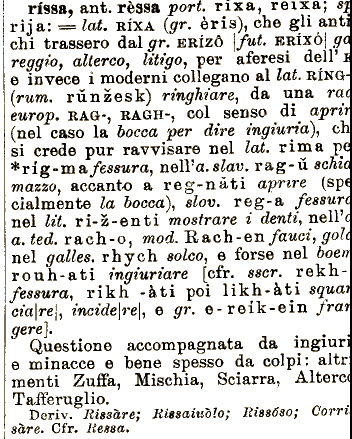 rissa, ant. rèssa port. rixa, reixa; sp
rija: = lat. RÍXA (gr. èris), che gli anti
chi trassero dal gr. ERÍZÔ |fut. ERÍXÔ| ga
reggio, alterco, litigo, per aferesi dell' E
e invece i moderni collegano al lat. RÍNG-
(rum. rŭnžesk) ringhiare, da una rad
europ. RAG-, RAGH-, col senso di aprir
(nel caso la bocca per dire ingiuria), ch
si crede pur ravvisare nel lat. rima pe
*rig-ma fessura, nell'a. slav. rag-ŭ schia
mazzo, accanto a reg-näti aprire (spe
cialmente la bocca), slov. reg-a fessura
nel lit. ri-ž-enti mostrare i denti, nell'a
a. ted. rach-o, mod. Rach-en fauci, gola
nel galles. rhych solco, e forse nel boem
rouh-ati ingiuriare [cfr. sscr. rekh-
fessura, rikh -àti poi likh-àti squar
cia|re|, incide|re|, e gr. e-reik-ein fran
gere].
Questione accompagnata da ingiuri
e minacce e bene spesso da colpi: altri
menti Zuffa, Mischia, Sciarra, Alterco
Tafferuglio.
Deriv. Rissàre; Rissaiuòlo; Rissóso; Corri
sàre. Cfr. Ressa.